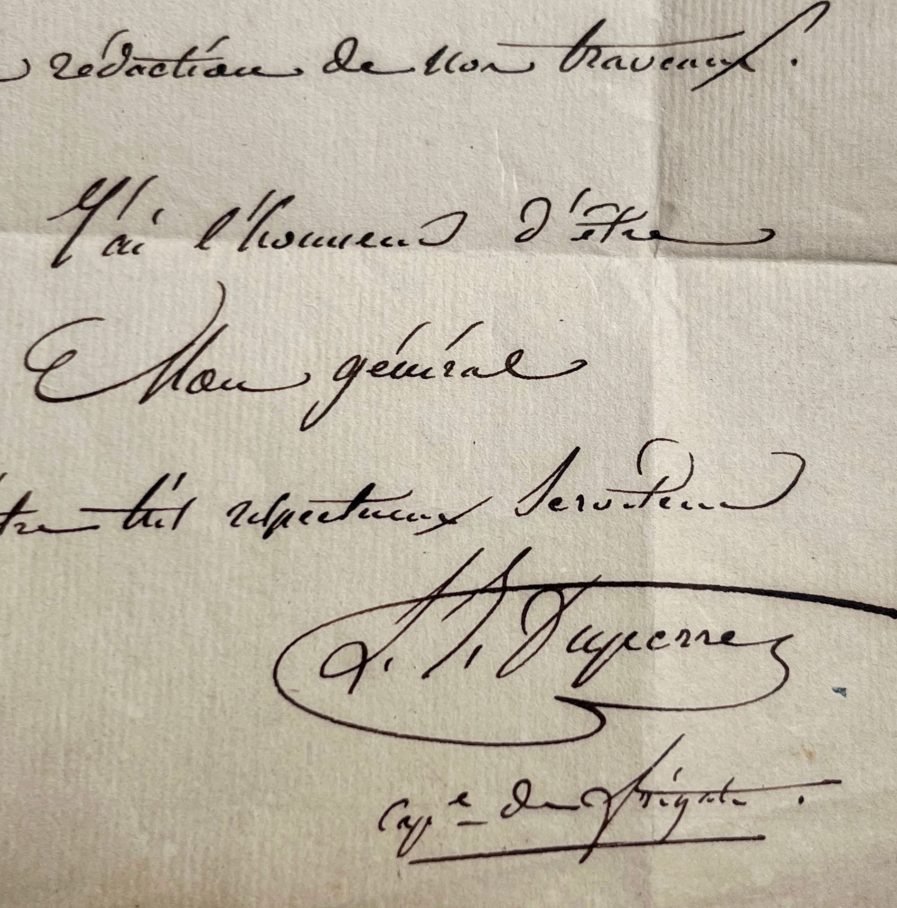 rédaction de nos travaux.
J'ai l'honneur d'être
Mon général
tre très respectueux Serviteur
L. I. Duperrey
cape de frégate.